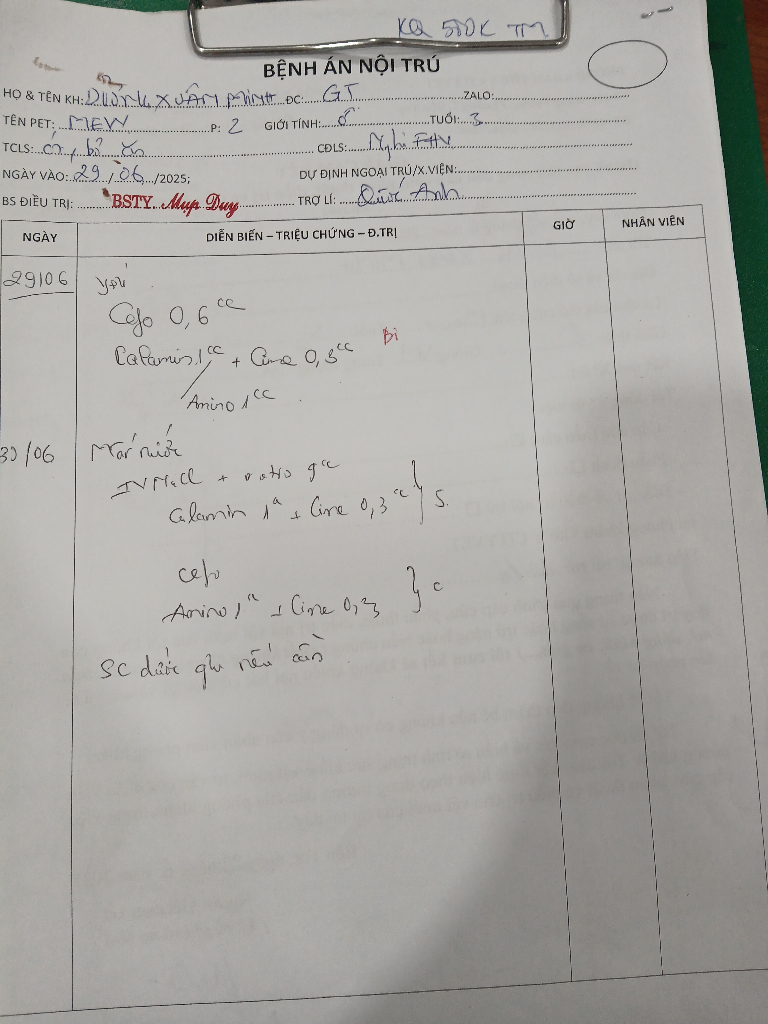 KQ 500K TM
BỆNH ÁN NỘI TRÚ
HỌ & TÊN KH: XUÂN MINH ĐC: GT ZALO:
TÊN PET: MEW P: 2 GIỚI TÍNH: ♂ TUỔI: 3
TCLS: ói, bỏ ăn CĐLS: Nghi FHV
NGÀY VÀO: 29/06/2025; DỰ ĐỊNH NGOẠI TRÚ/X.VIỆN:
BS ĐIỀU TRỊ: BSTY. Mup Duy TRỢ LÍ: Quốc Anh
NGÀY DIỄN BIẾN – TRIỆU CHỨNG – Đ.TRỊ GIỜ NHÂN VIÊN
29/06
Cefo 0,6cc
Catamin 1cc + Cine 0,3cc
Amino 1cc
30/06 Mất nước
IV NaCl + 9cc
Calamin 1cc + Cine 0,3cc } S
Cefo
Amino 1cc + Cine 0,3 } C
SC dưới nếu cần